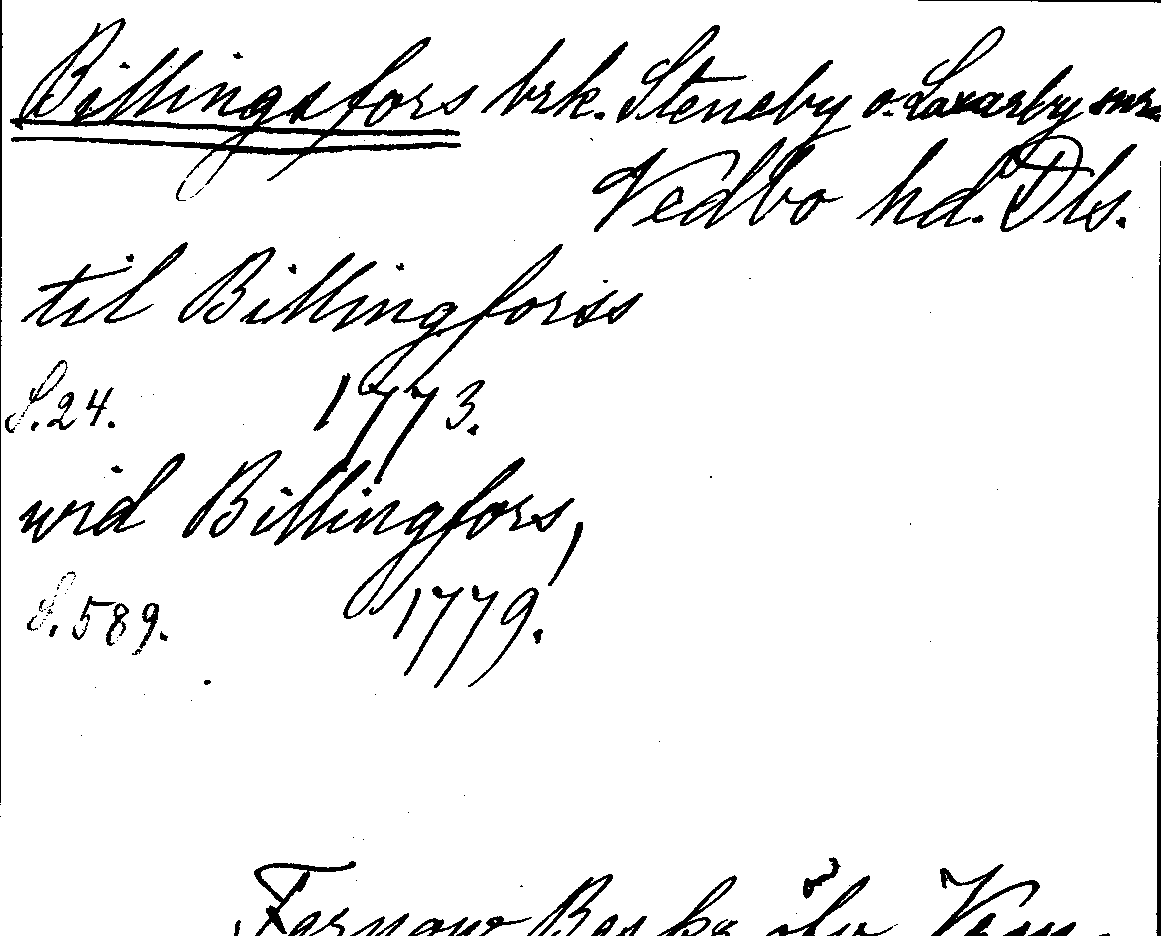 Billingsfors brk. Steneby o. Laxarby snr
Vedbo hd. Dls.
til Billingforss
S. 24. 1773.
wid Billingfors,
S. 589. 1779.
Fernow Beskr. öfv. Verm.